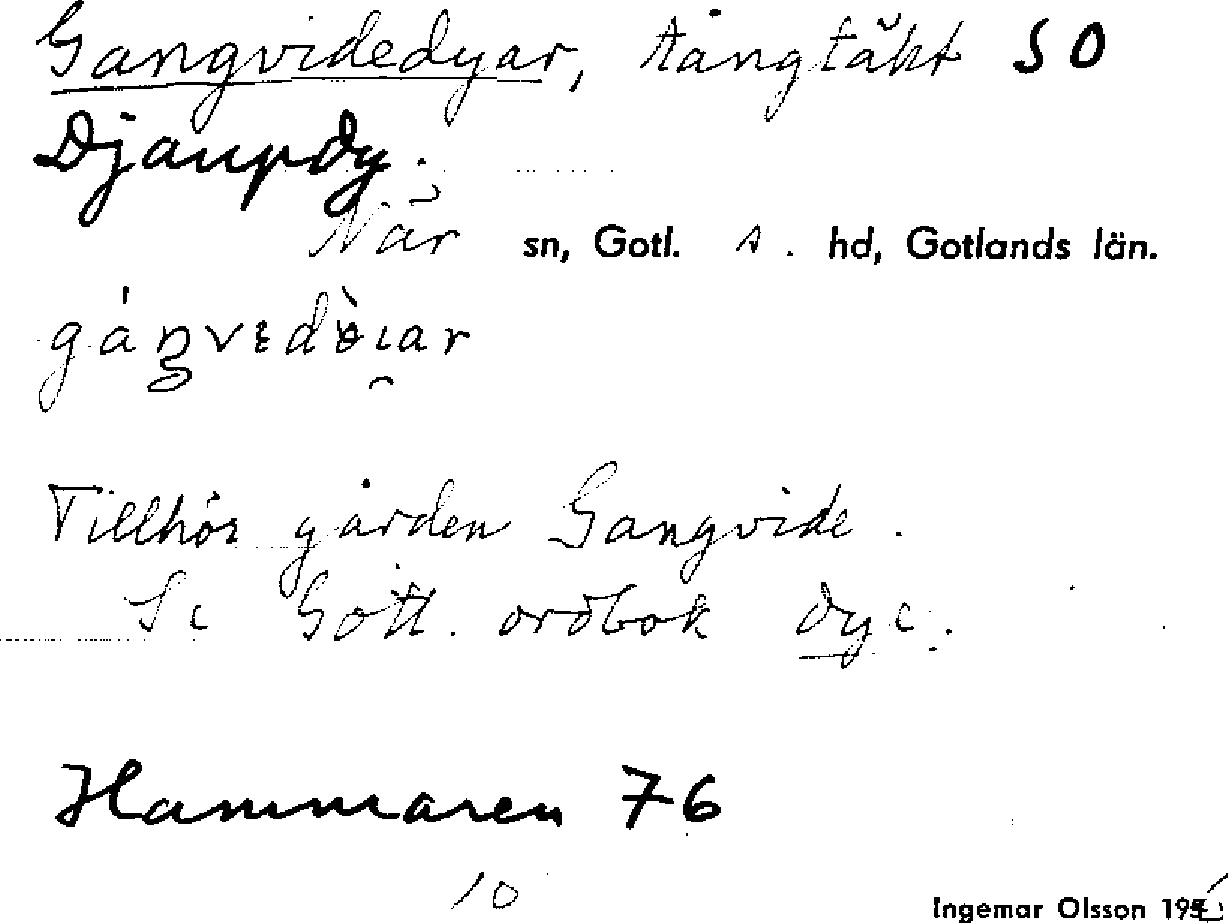 Gangvidedyar, tångtäkt SO
Djaupdy.
När sn, Gotl. s. hd, Gotlands län.
Tillhör gården Gangvide.
Se Gotl. ordbok dye.
Hammaren 76
10
Ingemar Olsson